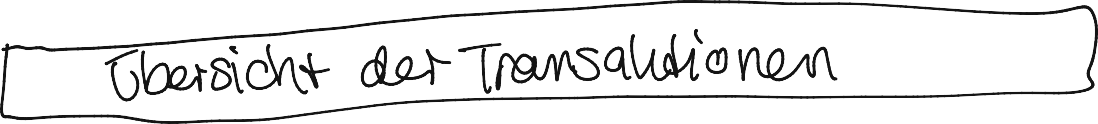 Übersicht der Transaktionen